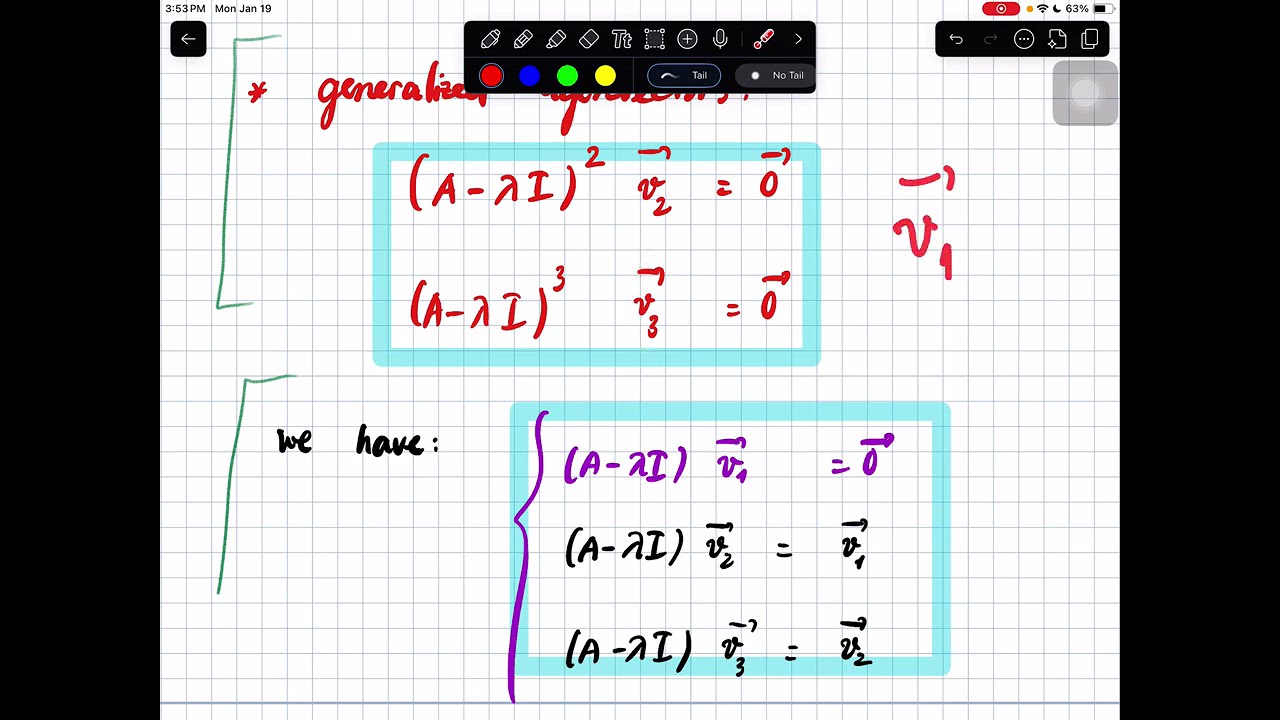 3:53 PM Mon Jan 19 63%
Tt
Tail No Tail
* generalized
(A - λI)² v₂⃗ = 0⃗
v₁⃗
(A - λI)³ v₃⃗ = 0⃗
we have:
(A - λI) v₁⃗ = 0⃗
(A - λI) v₂⃗ = v₁⃗
(A - λI) v₃⃗ = v₂⃗